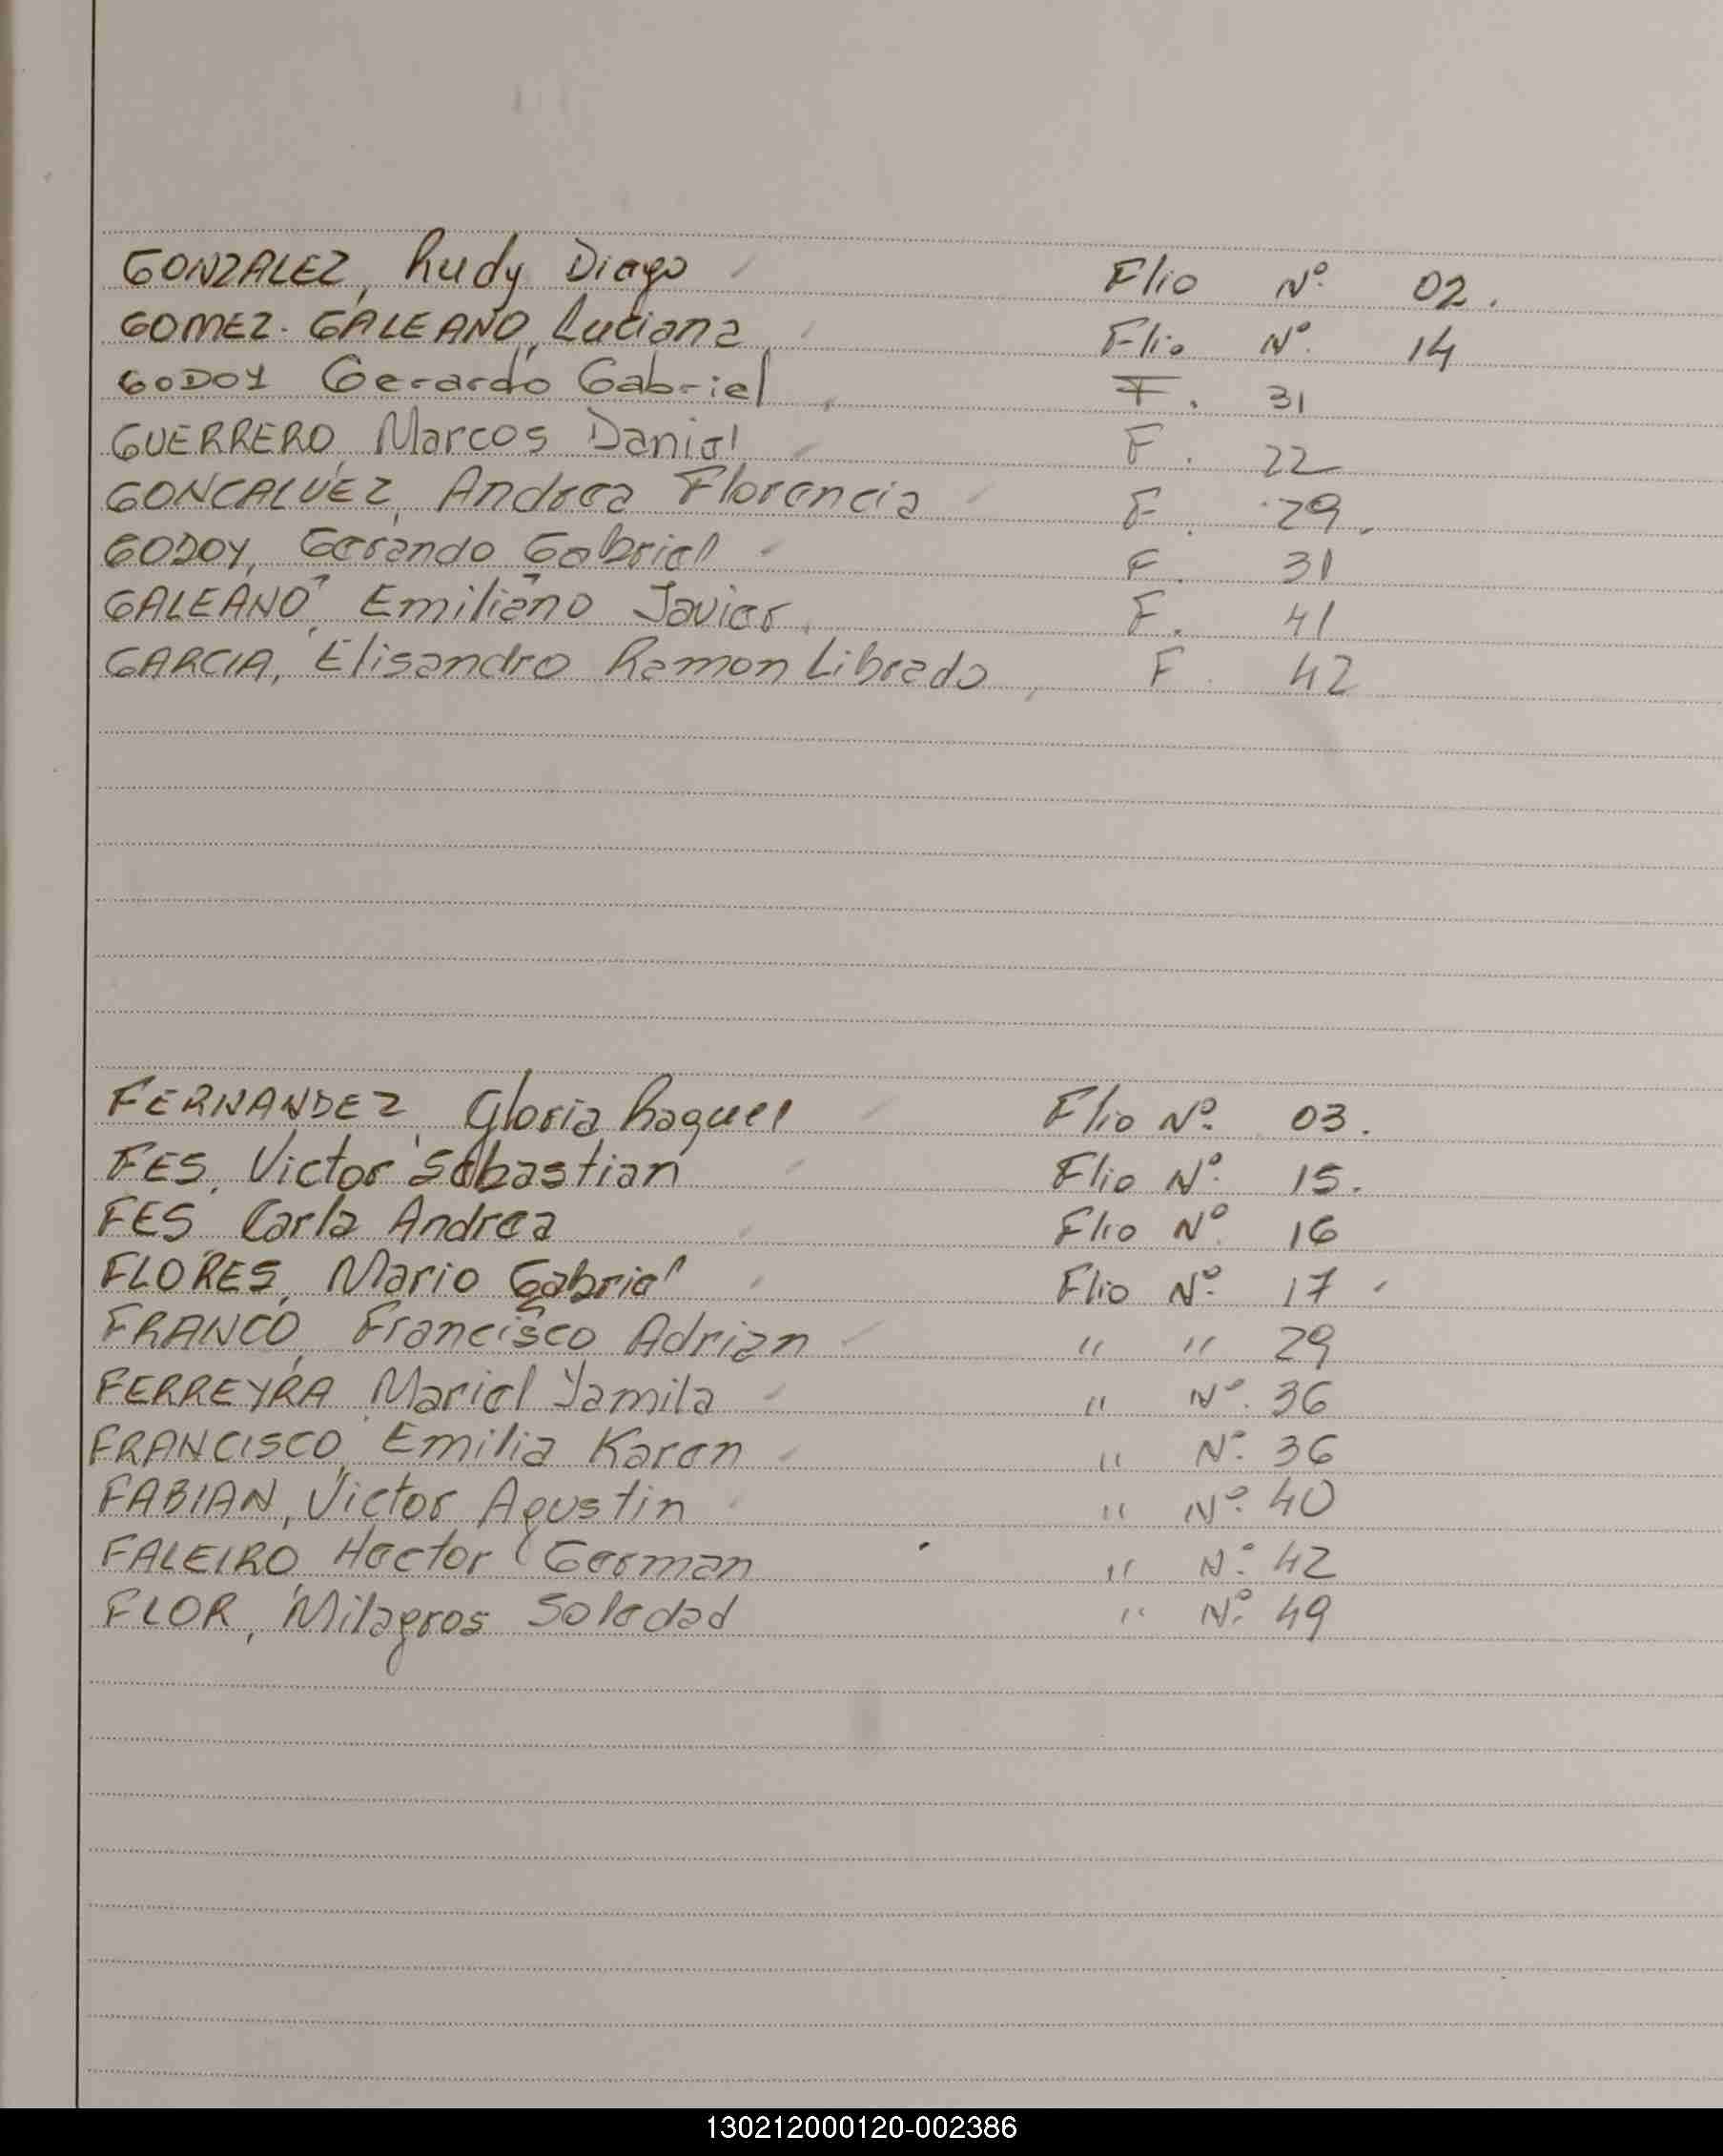 GONZALEZ, Rudy Diego Flio Nº 02.
GOMEZ. GALEANO, Luciana Flio Nº. 14
GODOY Gerardo Gabriel F. 31
GUERRERO, Marcos Daniel F. 22
GONCALVEZ, Andrea Florencia F. 29.
GODOY, Gerando Gabriel F. 31
GALEANO, Emiliano Javier F. 41
GARCIA, Elisandro Ramon Librado F. 42
FERNANDEZ, Gloria Raquel Flio Nº 03.
FES, Victor Sebastian Flio Nº 15.
FES Carla Andrea Flio Nº 16
FLORES, Mario Gabriel Flio Nº 17
FRANCO, Francisco Adrian " " 29
FERREYRA, Mariel Yamila " Nº. 36
FRANCISCO, Emilia Karen " Nº. 36
FABIAN, Victor Agustin " Nº. 40
FALEIRO, Hector German " Nº. 42
FLOR, Milagros Soledad " Nº. 49
130212000120-002386